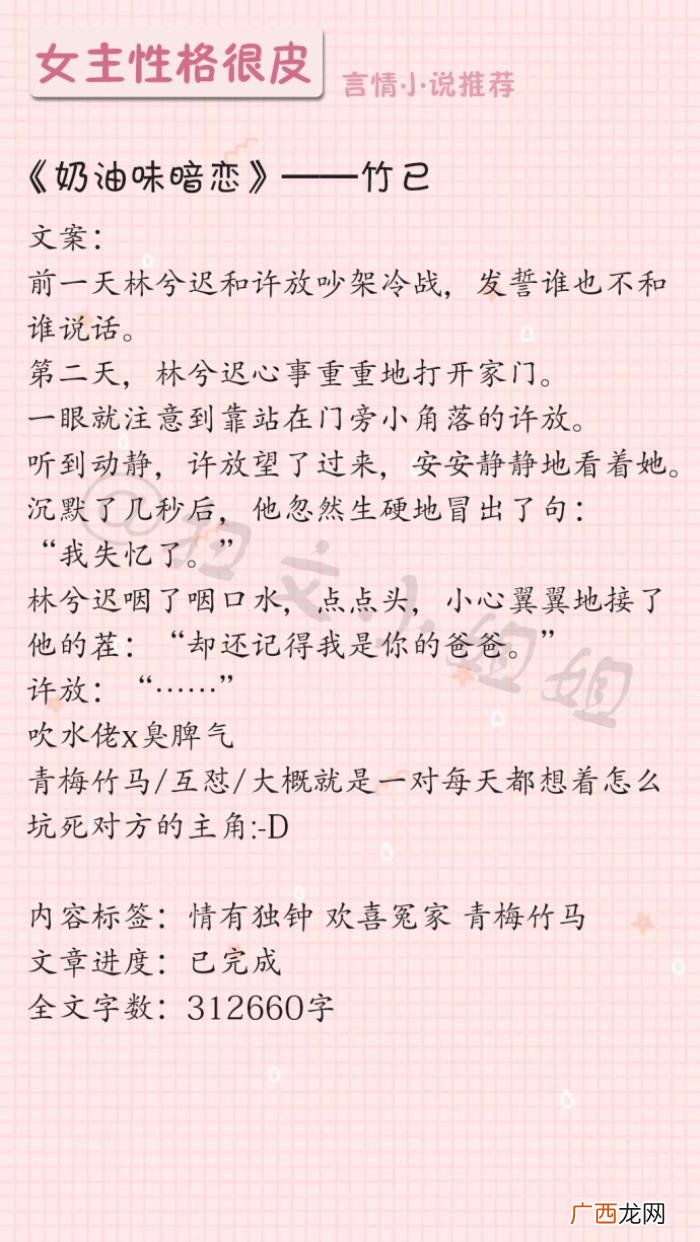 女主性格很皮
言情小说推荐
《奶油味暗恋》——竹已
文案：
前一天林兮迟和许放吵架冷战，发誓谁也不和
谁说话。
第二天，林兮迟心事重重地打开家门。
一眼就注意到靠站在门旁小角落的许放。
听到动静，许放望了过来，安安静静地看着她。
沉默了几秒后，他忽然生硬地冒出了句：
“我失忆了。”
林兮迟咽了咽口水，点点头，小心翼翼地接了
他的茬：“却还记得我是你的爸爸。”
许放：“……”
吹水佬x臭脾气
青梅竹马/互怼/大概就是一对每天都想着怎么
坑死对方的主角:-D
内容标签：情有独钟 欢喜冤家 青梅竹马
文章进度：已完成
全文字数：312660字
@扫文小姐姐
广西龙网